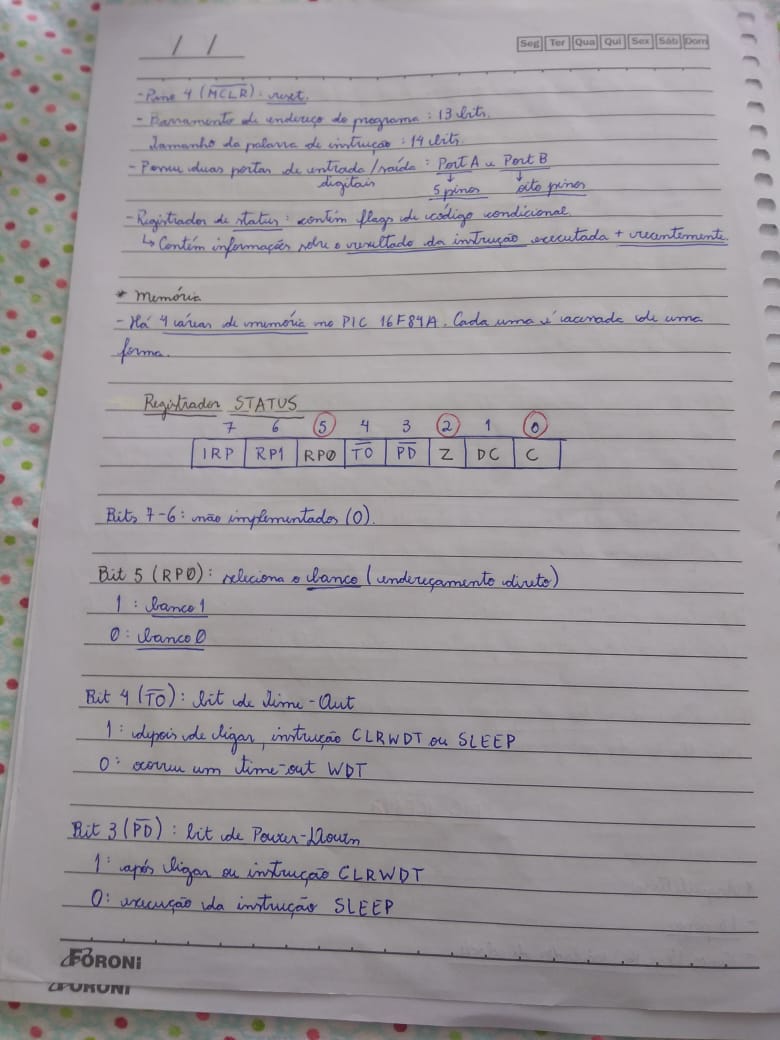 / /
Seg Ter Qua Qui Sex Sáb Dom
- Pino 4 (M̅C̅L̅R̅): reset.
- Barramento de endereço de programa: 13 bits.
Tamanho da palavra de instrução: 14 bits.
- Possui duas portas de entrada/saída: Port A e Port B
digitais
↓ ↓
5 pinos oito pinos
- Registrador de status: contém flags de código condicional.
↳ Contém informações sobre o resultado da instrução executada + recentemente.
* Memória
- Há 4 áreas de memória no PIC 16F84A. Cada uma é acessada de uma
forma.
Registrador STATUS
7 6 5 4 3 2 1 0
IRP RP1 RP0 T̅O̅ P̅D̅ Z DC C
Bits 7-6: não implementados (0).
Bit 5 (RP0): seleciona o banco (endereçamento direto)
1: banco 1
0: banco 0
Bit 4 (T̅O̅): bit de Time-Out
1: depois de ligar, instrução CLRWDT ou SLEEP
0: ocorreu um time-out WDT
Bit 3 (P̅D̅): bit de Power-Down
1: após ligar ou instrução CLRWDT
0: execução da instrução SLEEP
FORONI
FORONI